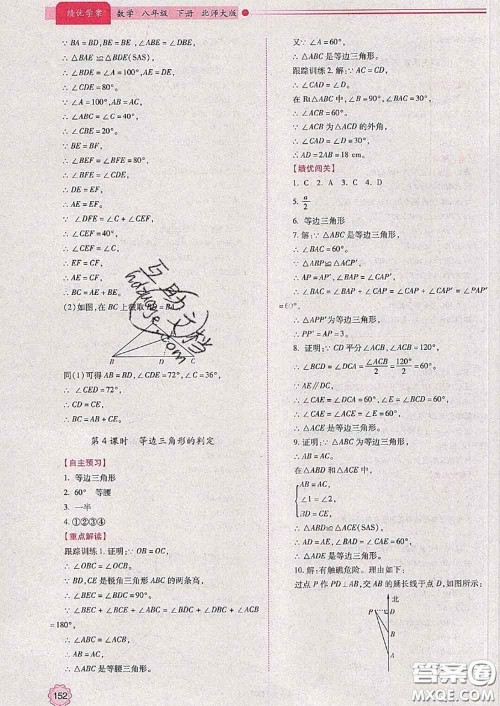 绩优学案 数学 八年级 下册 北师大版
∵ BA=BD,BE=BE,
∴ △BAE≌△BDE(SAS),
∴ ∠BDE=∠A=100°,AE=DE,
∴ ∠CDE=80°。
∵ ∠A=100°,AB=AC,
∴ ∠ABC=∠C=40°,
∴ ∠CBE=20°。
∵ BE=BF,
∴ ∠BEF=∠BFE=80°,
∴ ∠DFE=∠FDE,
∴ DE=EF,
∴ AE=EF。
∵ ∠DFE=∠C+∠CEF,
∴ ∠CEF=40°=∠C,
∴ EF=CF,
∴ AE=CF,
∴ BC=AE+BE。
(2)如图,在BC上截取
B D C
同(1)可得AB=BD,∠BDE=72°,∠C=36°,
∴ ∠CED=72°=∠CDE,
∴ CD=CE,
∴ BC=AB+CE。
第4课时 等边三角形的判定
【自主预习】
1. 等边三角形
2. 60° 等腰
3. 一半
4. ①②③④
【重点解读】
跟踪训练1. 证明:∵ OB=OC,
∴ ∠OBC=∠OCB。
∵ BD,CE是锐角三角形ABC的两条高,
∴ ∠BEC=∠BDC=90°。
∵ ∠BEC+∠BCE+∠ABC=∠BDC+∠DBC+∠ACB
=180°,
∴ ∠ABC=∠ACB,
∴ AB=AC,
∴ △ABC是等腰三角形。
又∵ ∠A=60°,
∴ △ABC是等边三角形。
跟踪训练2. 解:∵ AC=CD,
∴ ∠CAD=∠D。
在Rt△ABC中,∠B=90°,∠BAC=30°,
∴ ∠ACB=60°。
∵ ∠ACB为△ACD的外角,
∴ AD=2AB=18 cm。
【绩优闯关】
1. C 2. A 3. C 4. D
5. a/2
6. 等边三角形
7. 解:∵ △ABC是等边三角形,
∴ ∠BAC=60°。
∵ △ABP≌△ACP′,
∴ AP=AP′,∠BAP=∠CAP′,
∴ ∠PAP′=∠PAC+∠CAP′=∠PAC+∠BAP
=60°,
∴ △APP′是等边三角形,
∴ PP′=AP=3。
8. 证明:∵ CD平分∠ACB,∠ACB=120°,
∴ ∠BCD=∠DCA=∠ACB/2=120°/2=60°。
∵ AE∥DC,
∴ ∠E=∠BCD=60°,∠CAE=∠DCA=60°,
∴ ∠ACE=∠CAE=∠E=60°,
∴ △ACE是等边三角形。
9. 证明:∵ △ABC为等边三角形,
∴ AB=AC。
在△ABD和△ACE中,
AB=AC,
∠1=∠2,
BD=CE,
∴ △ABD≌△ACE(SAS),
∴ AD=AE,∠DAE=∠BAC=60°,
∴ △ADE是等边三角形。
10. 解:有触礁危险。理由如下:
过点P作PD⊥AB,交AB的延长线于点D,如图所示:
北
P D
B
A
互助文档
hdzuoye.com
152
答案圈
MXQE.COM